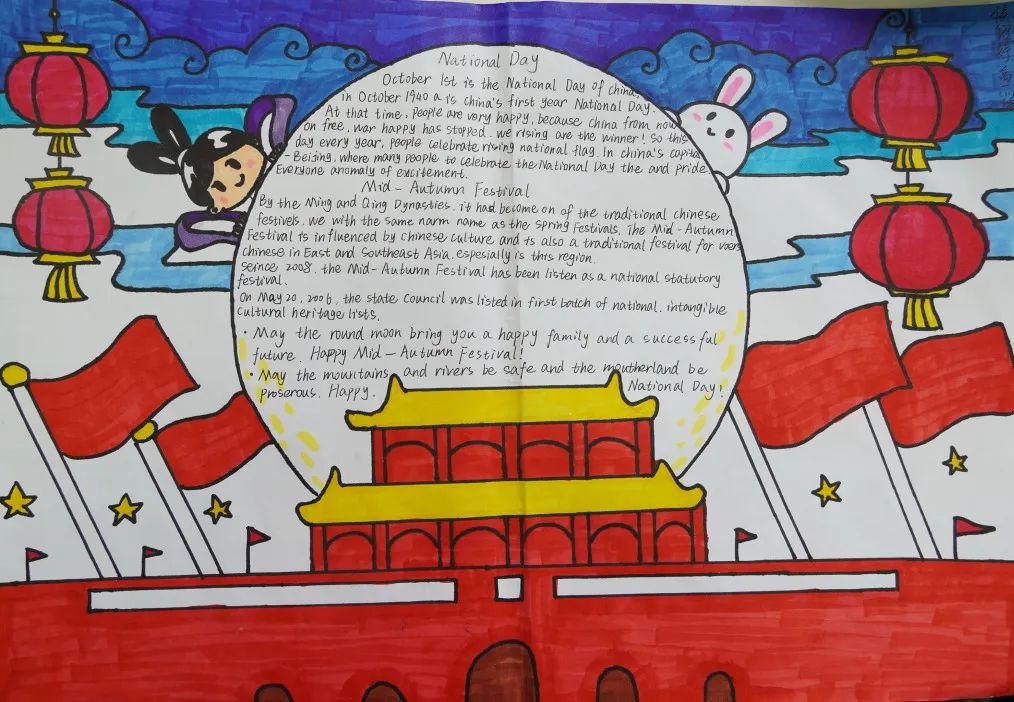 National Day
October 1st is the National Day of china,
in October 1940 a is china's first year National Day.
At that time, People are very happy, because China from now
on free, war happy has stopped. we rising are the winner! So this
day every year, people celebrate rising national flag. In china's capital
- Beijing, where many people to celebrate the National Day the and pride.
Everyone anomaly of excitement.
Mid-Autumn Festival
By the Ming and Qing Dynasties. it had become on of the traditional chinese
festivels. we with the same narm name as the spring Festivals, The Mid-Autumn
Festival is influenced by chinese culture and is also a traditional festival for voers
chinese in East and Southeast Asia. espesially is this region.
seince 2008. the Mid-Autumn Festival has been listen as a national statutory
festival.
On May 20, 2006, the state Council was listed in first batch of national. intangible
cultural heritage lists.
• May the round moon bring you a happy family and a successful
future. Happy Mid-Autumn Festival!
• May the mountains and rivers be safe and the moutherland be
proserous. Happy. National Day!